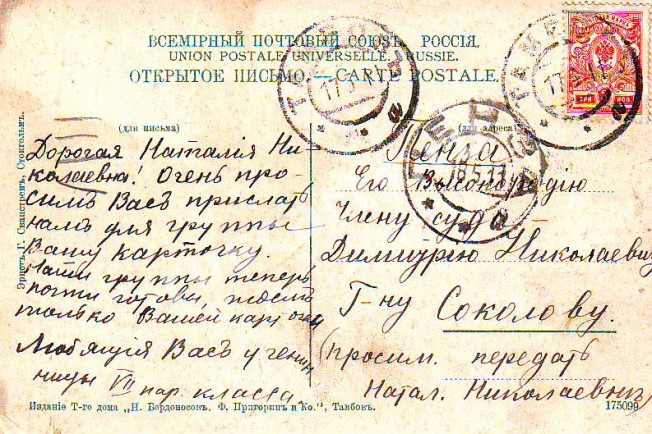 ВСЕМІРНЫЙ ПОЧТОВЫЙ СОЮЗЪ. РОССІЯ.
UNION POSTALE UNIVERSELLE. RUSSIE.
ОТКРЫТОЕ ПИСЬМО. — CARTE POSTALE.
(для письма)
Дорогая Наталія Ни-
колаевна! Очень про-
симъ Васъ прислать
намъ для группы
Вашу карточку.
Наши группы теперь
почти готовы, ждемъ
только Вашей карточки
Любящія Васъ учени-
ницы VII пар. класса
(для адреса)
Пенза
Его Высокородію
Члену суда
Димитрію Николаевичу
Г-ну Соколову.
(просим. передать
Натал. Николаевнѣ)
17.5.11
ПЕНЗА
18.5.11
ТРИ КОП
Эрнстъ Г. Сванстремъ, Стокгольмъ.
Изданіе Т-го дома „Н. Бордоносовъ, Ф. Пригоринъ и Ко.", Тамбовъ.
175099